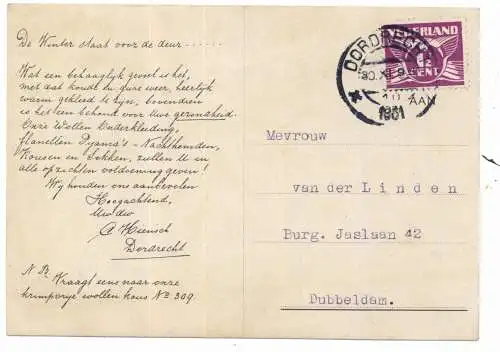 De Winter staat voor de deur
Wat een behaaglijk gevoel is het,
met dat koude en gure weer, heerlijk
warm gekleed te zijn, bovendien
is het een behoud voor Uwe gezondheid.
Onze Wollen Onderkleeding,
flanellen Pyama's - Nachthemden,
Kousen en Sokken, zullen U in
alle opzichten voldoening geven!
Wij houden ons aanbevolen
Hoogachtend,
Uw dw
Dordrecht
N.B. Vraagt eens naar onze
krimpvrye wollen kous No 309.
NEDERLAND
1½
CENT
DORDRECHT
AAN
1931
Mevrouw
van der Linden
Burg. Jaslaan 42
Dubbeldam.